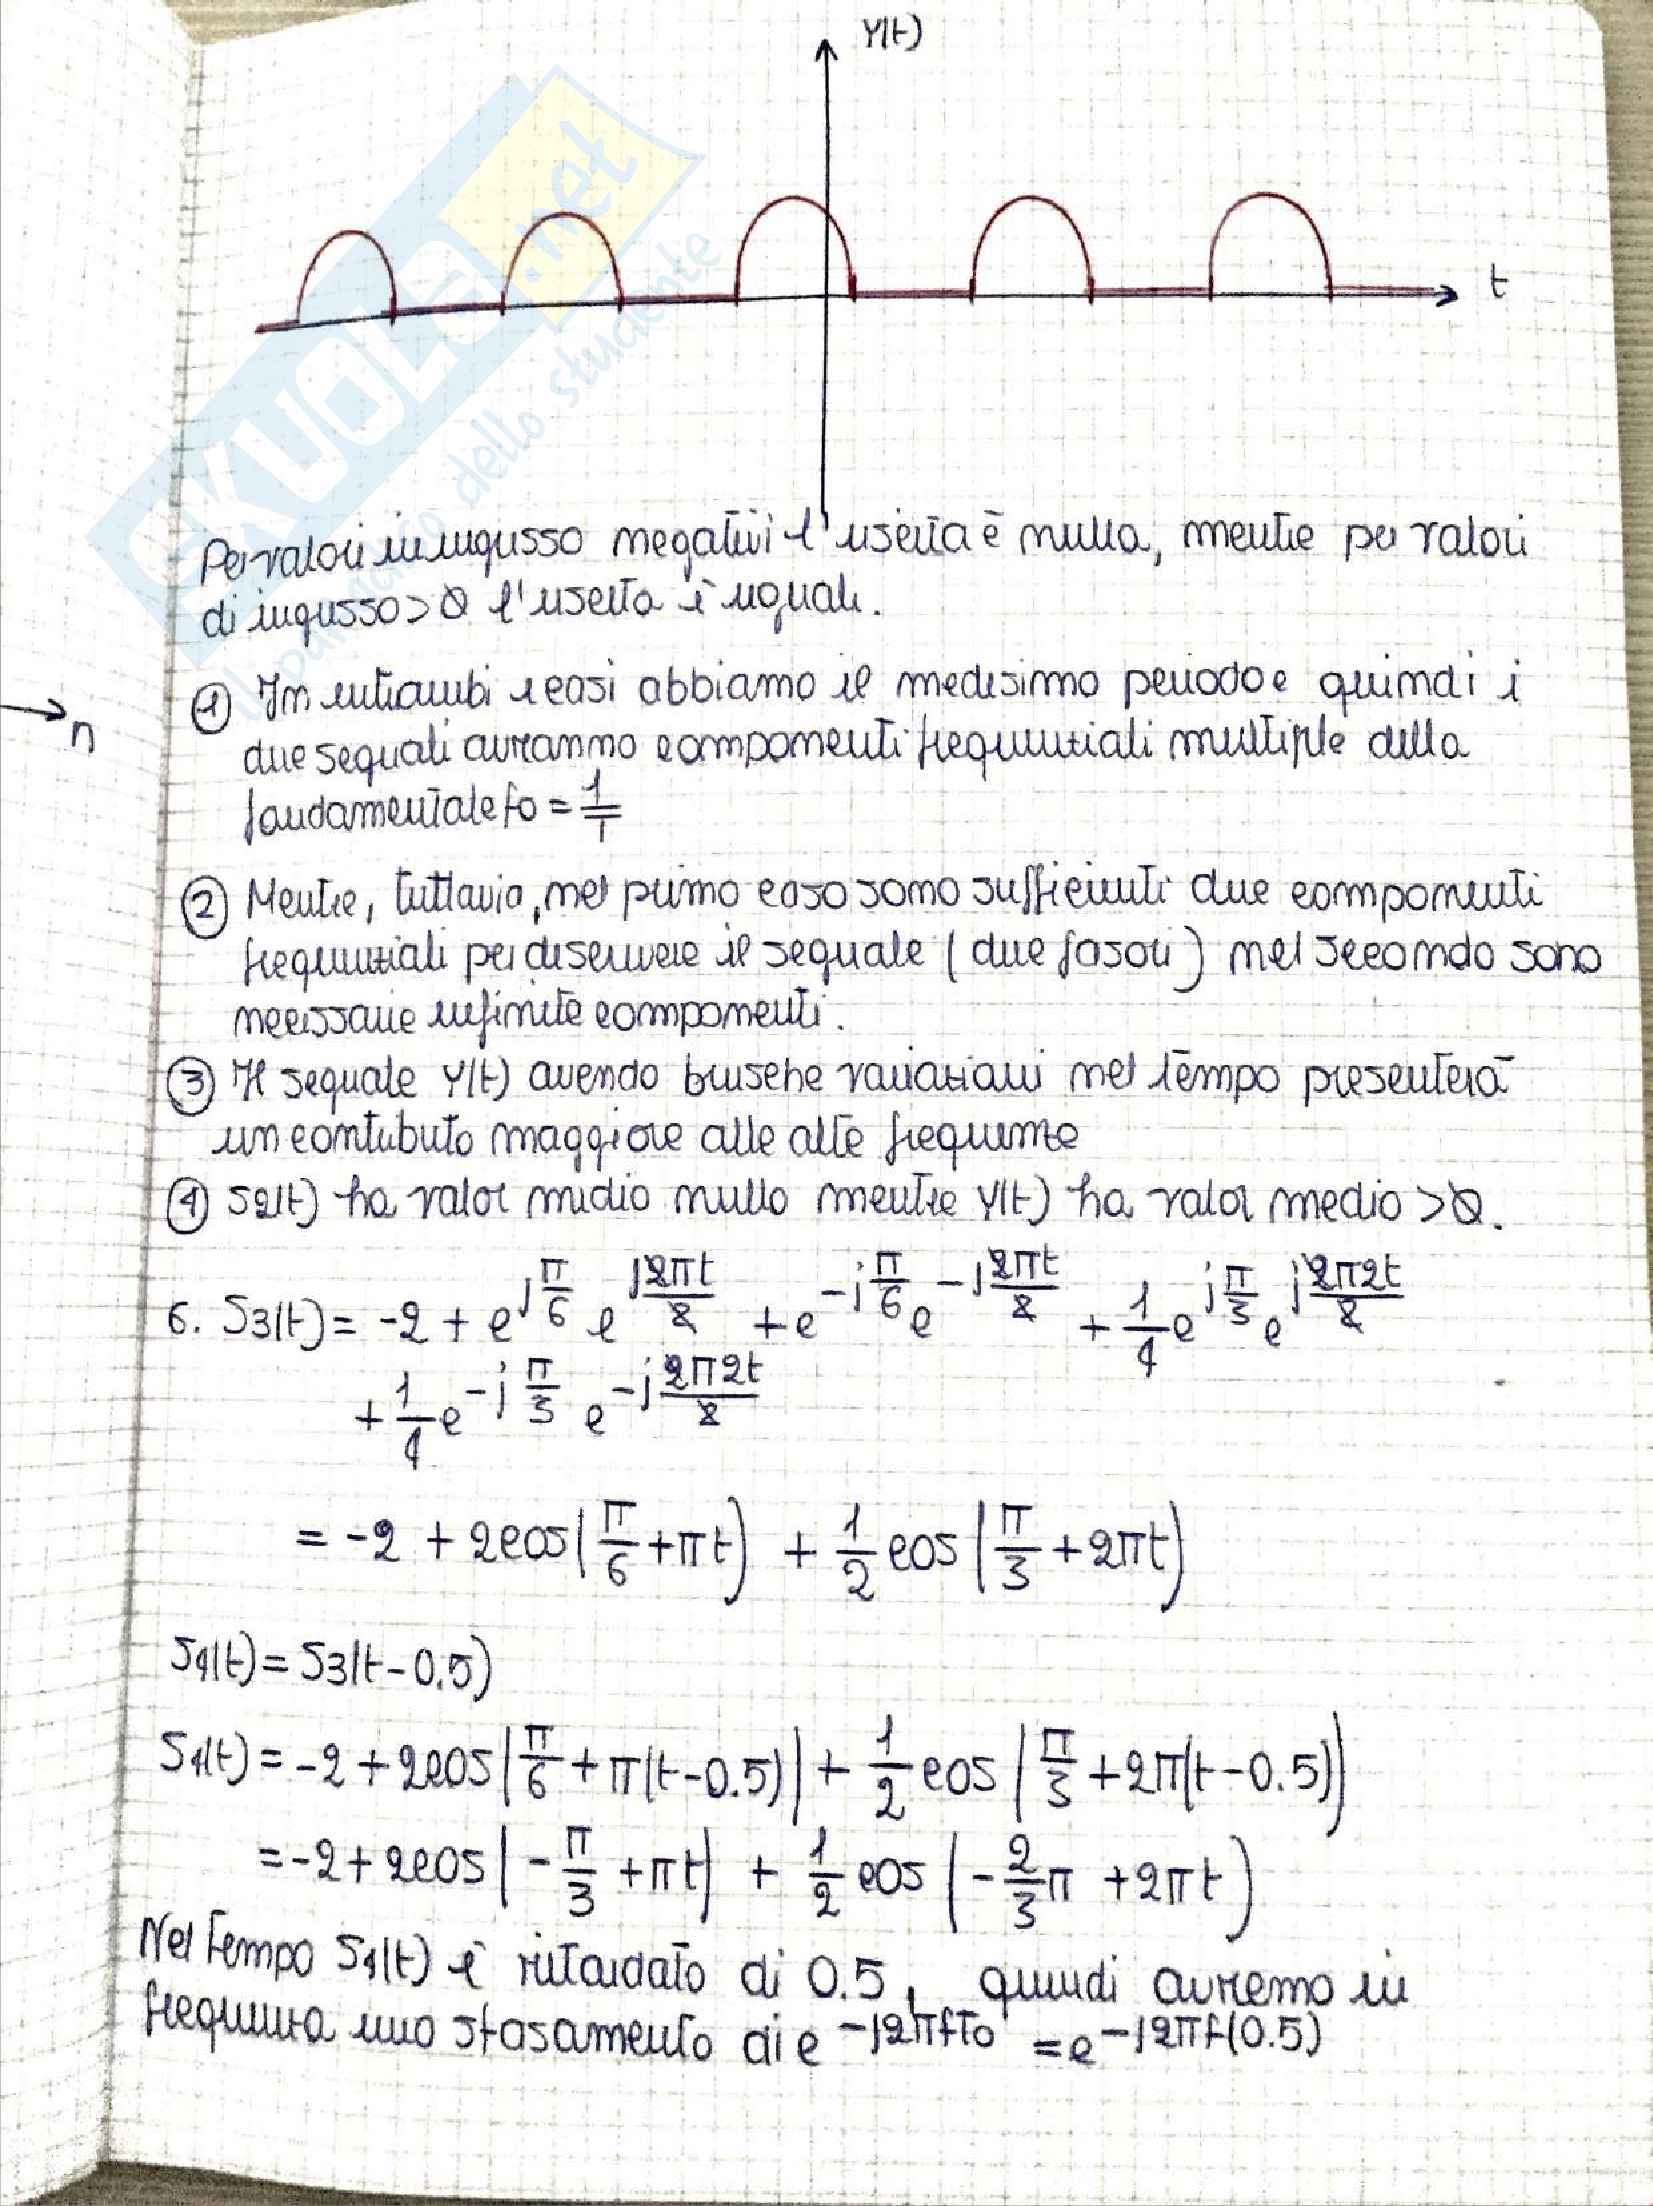 Y(t)
t
SKUOLA.net
il paradiso dello studente
Per valori in ingresso negativi l'uscita è nulla, mentre per valori
di ingresso > 0 l'uscita è uguale.
n
① In entrambi i casi abbiamo il medesimo periodo e quindi i
due segnali avranno componenti frequenziali multiple della
fondamentale f0 = 1/T
② Mentre, tuttavia, nel primo caso sono sufficienti due componenti
frequenziali per descrivere il segnale (due fasori) nel secondo sono
necessarie infinite componenti.
③ Il segnale Y(t) avendo brusche variazioni nel tempo presenterà
un contributo maggiore alle alte frequenze
④ S2(t) ha valor medio nullo mentre Y(t) ha valor medio > 0.
6. S3(t) = -2 + e^{jπ/6} e^{j2πt/2} + e^{-jπ/6} e^{-j2πt/2} + 1/4 e^{jπ/3} e^{j2π2t/2}
+ 1/4 e^{-jπ/3} e^{-j2π2t/2}
= -2 + 2cos(π/6 + πt) + 1/2 cos(π/3 + 2πt)
S4(t) = S3(t-0.5)
S4(t) = -2 + 2cos(π/6 + π(t-0.5)) + 1/2 cos(π/3 + 2π(t-0.5))
= -2 + 2cos(-π/3 + πt) + 1/2 cos(-2/3 π + 2πt)
Nel tempo S4(t) è ritardato di 0.5, quindi avremo in
frequenza uno sfasamento di e^{-j2πfT0} = e^{-j2πf(0.5)}